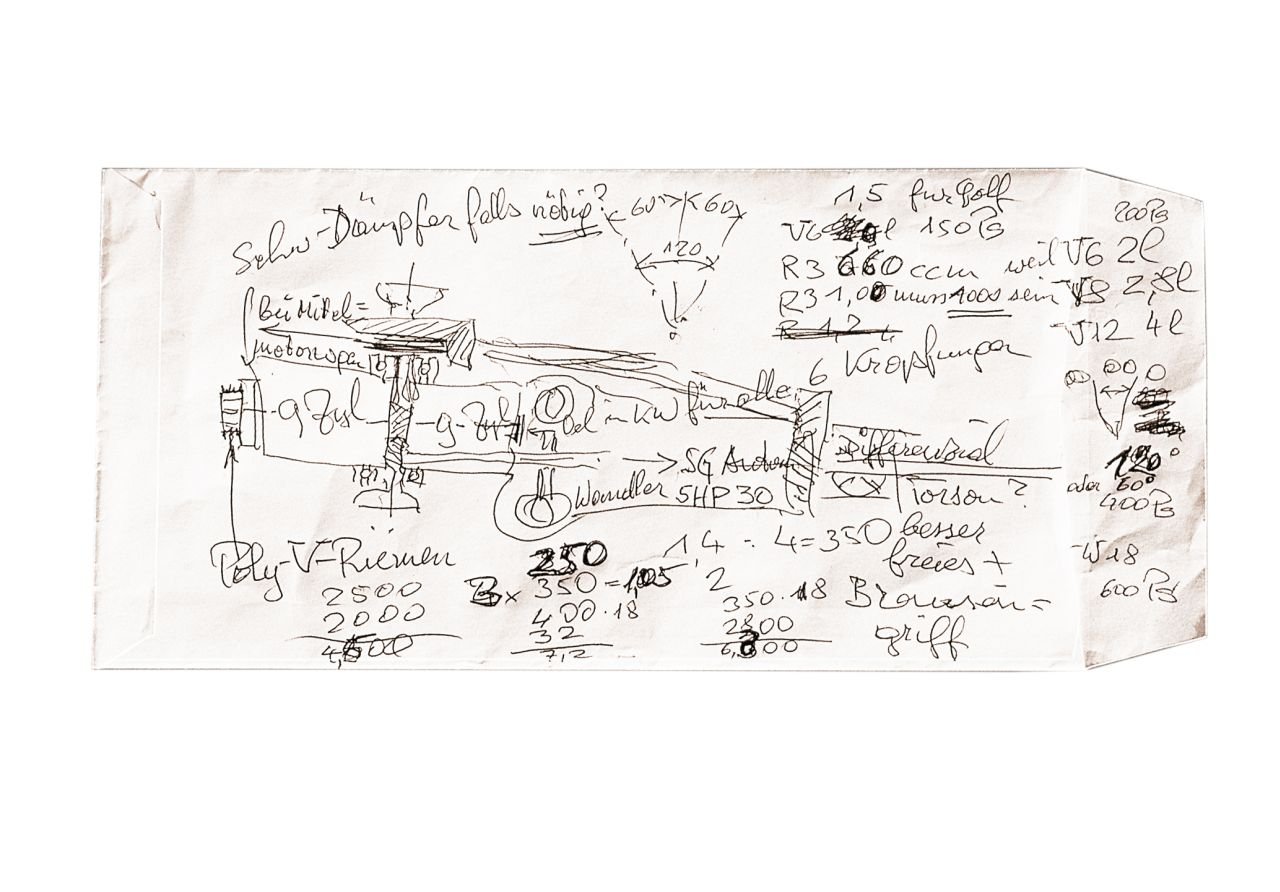 Schw-Dämpfer falls nötig?
60° 60
120
1,5 für Golf
V6 l 150 PS
R3 660 ccm weil
R3 1,00 muss 1000 sein
R 1,2
6 Kröpfungen
bei Mittel=
motorwagen
9 Zyl 9 Zyl Oel in KW für alle
→ 5G Autom
Wandler 5HP30
Differenzial
Torsen?
besser
freies +
Browson=
griff
Poly-V-Riemen
2500
2000
4,500
250
350 = 1,05
400 · 18
32
7,2
1,4 : 4 = 350
2
350 · 18
2800
6,300
200 PS
V6 2l
V8 2,8l
V12 4l
120°
oder 60°
400 PS
W18
600 PS